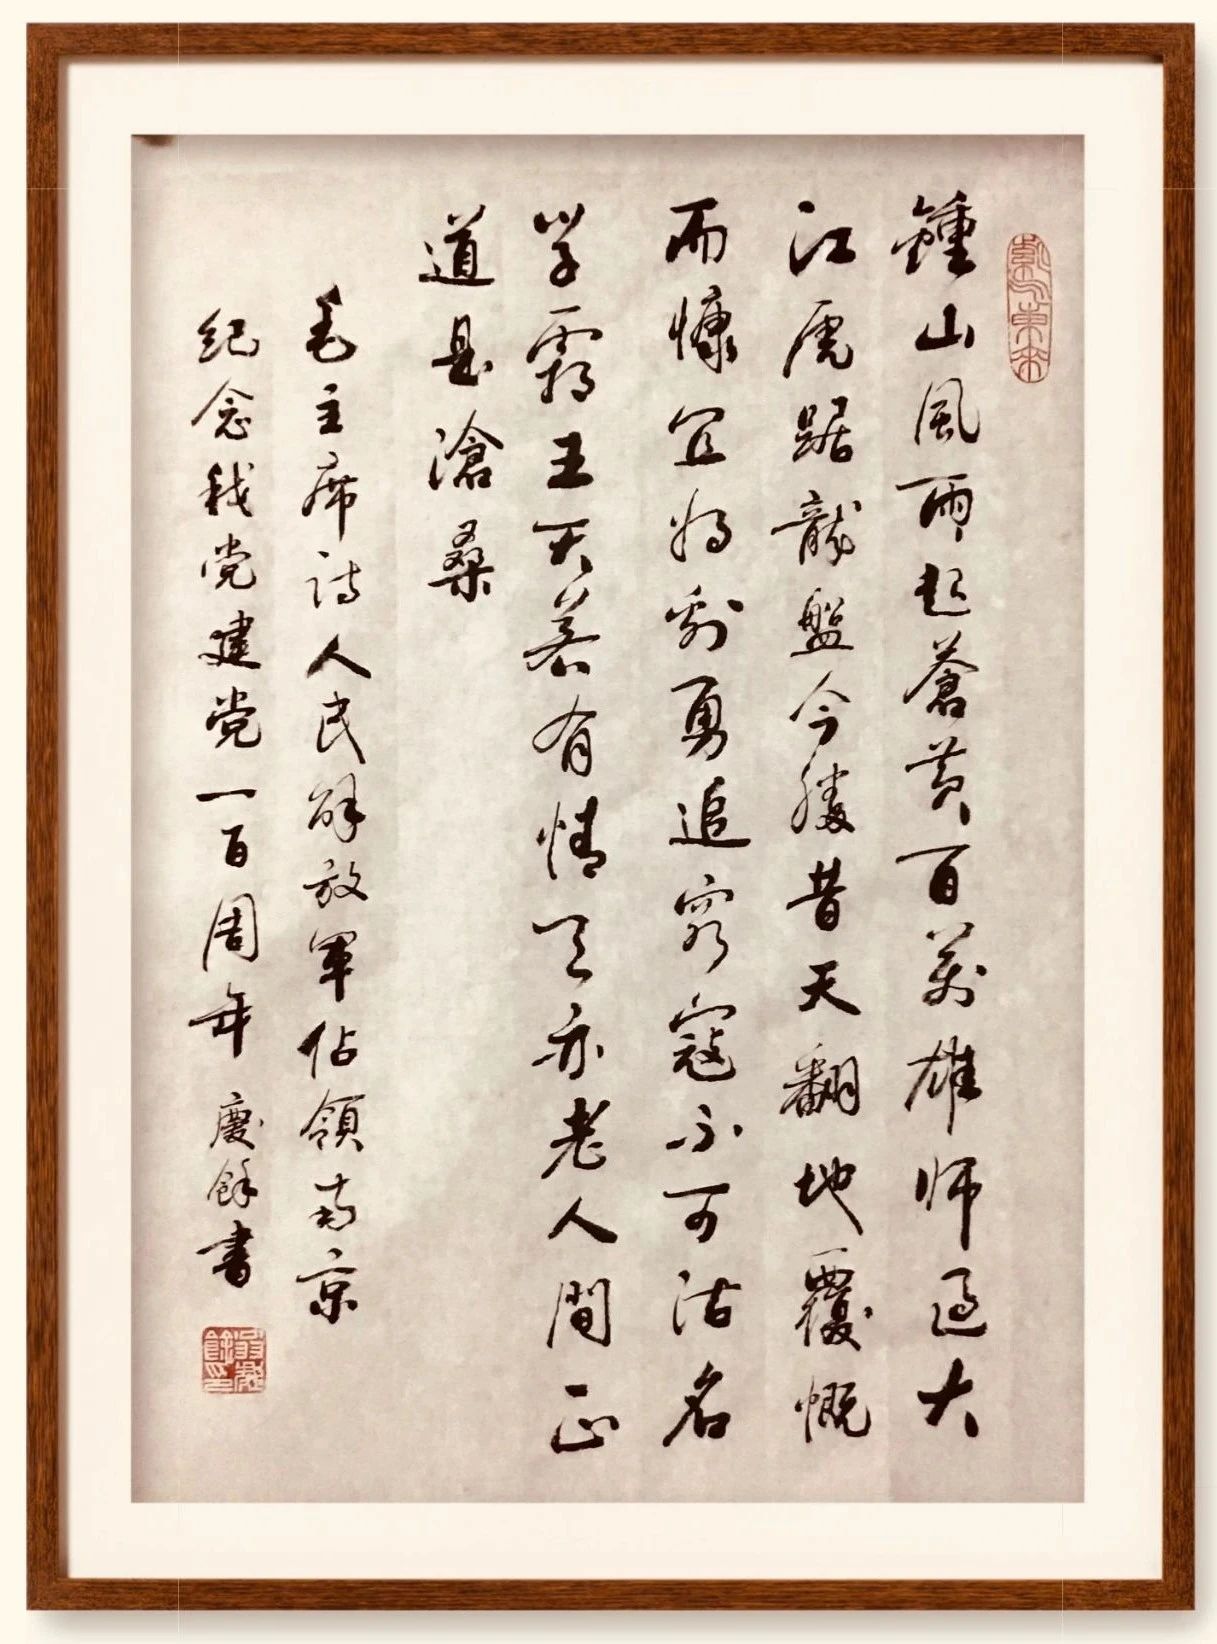 紫气東来
鍾山風雨起蒼黄百萬雄師過大
江虎踞龍盤今勝昔天翻地覆慨
而慷宜將剩勇追窮寇不可沽名
学霸王天若有情天亦老人間正
道是滄桑
毛主席詩人民解放軍佔領南京
纪念我党建党一百周年 慶餘書